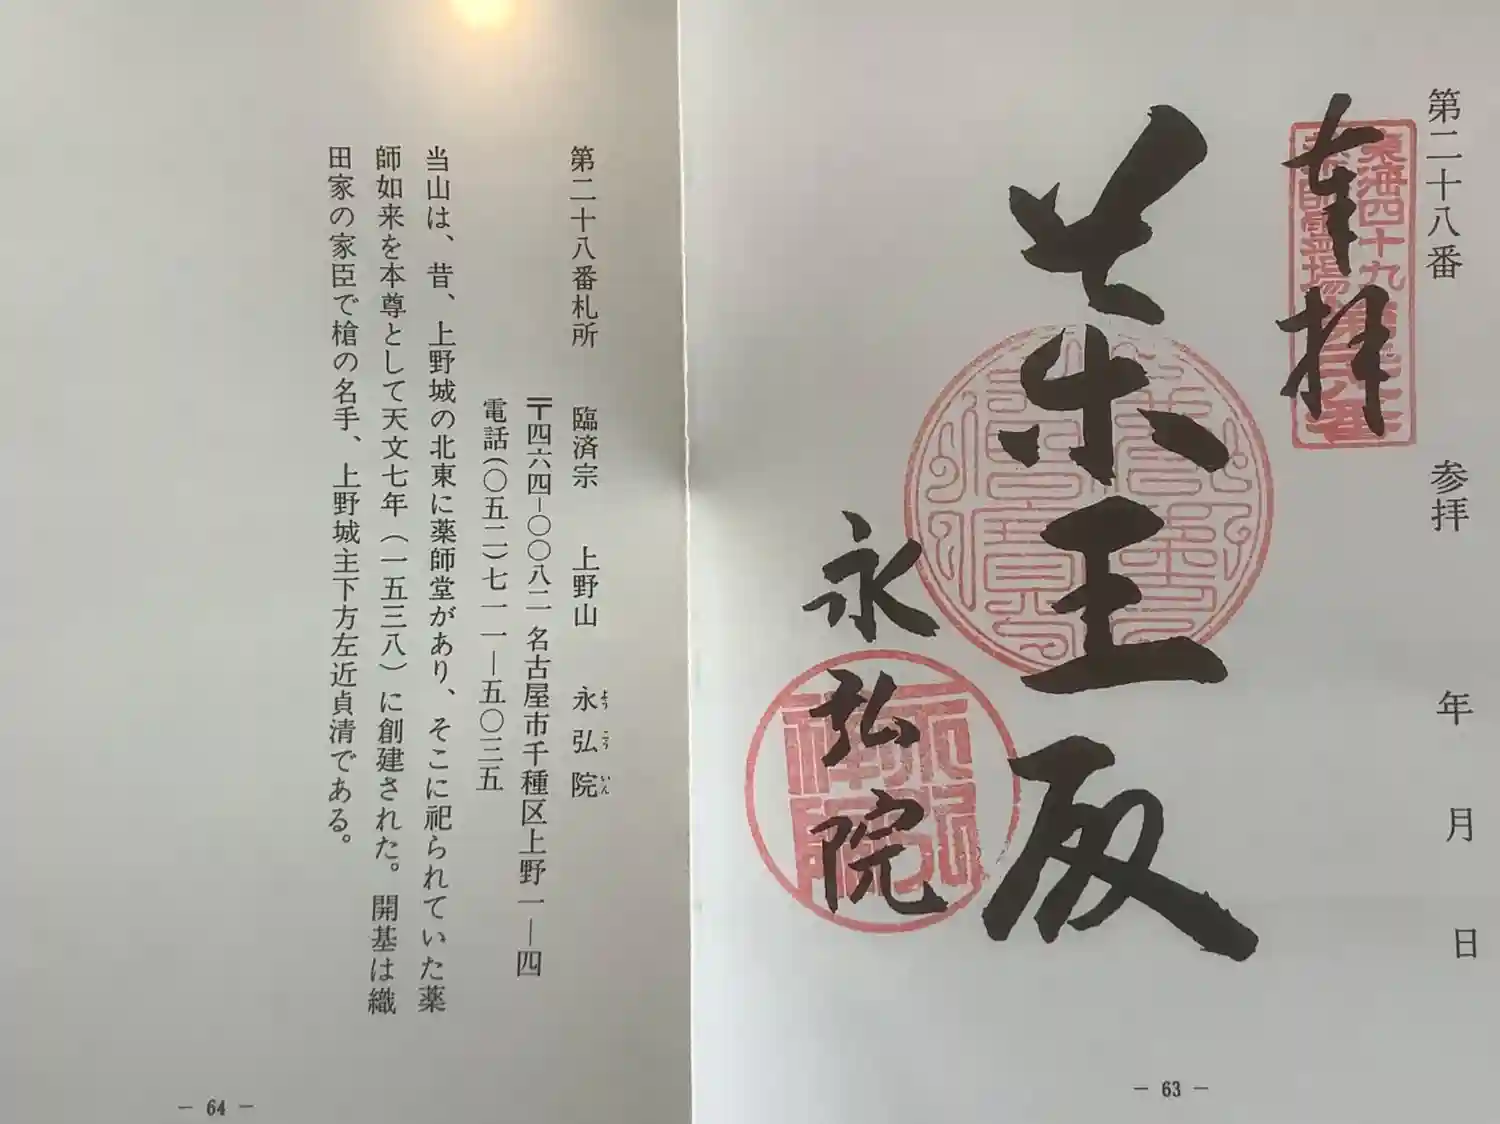 第二十八番 参拝 年 月 日
奉拝
東海四十九
薬師霊場第二十八番
医王殿
永弘院
— 63 —
第二十八番札所 臨済宗 上野山 永弘院
よう こう いん
〒四六四-〇〇八二 名古屋市千種区上野一—四
電話(〇五二)七一一—五〇三五
当山は、昔、上野城の北東に薬師堂があり、そこに祀られていた薬
師如来を本尊として天文七年(一五三八)に創建された。開基は織
田家の家臣で槍の名手、上野城主下方左近貞清である。
— 64 —